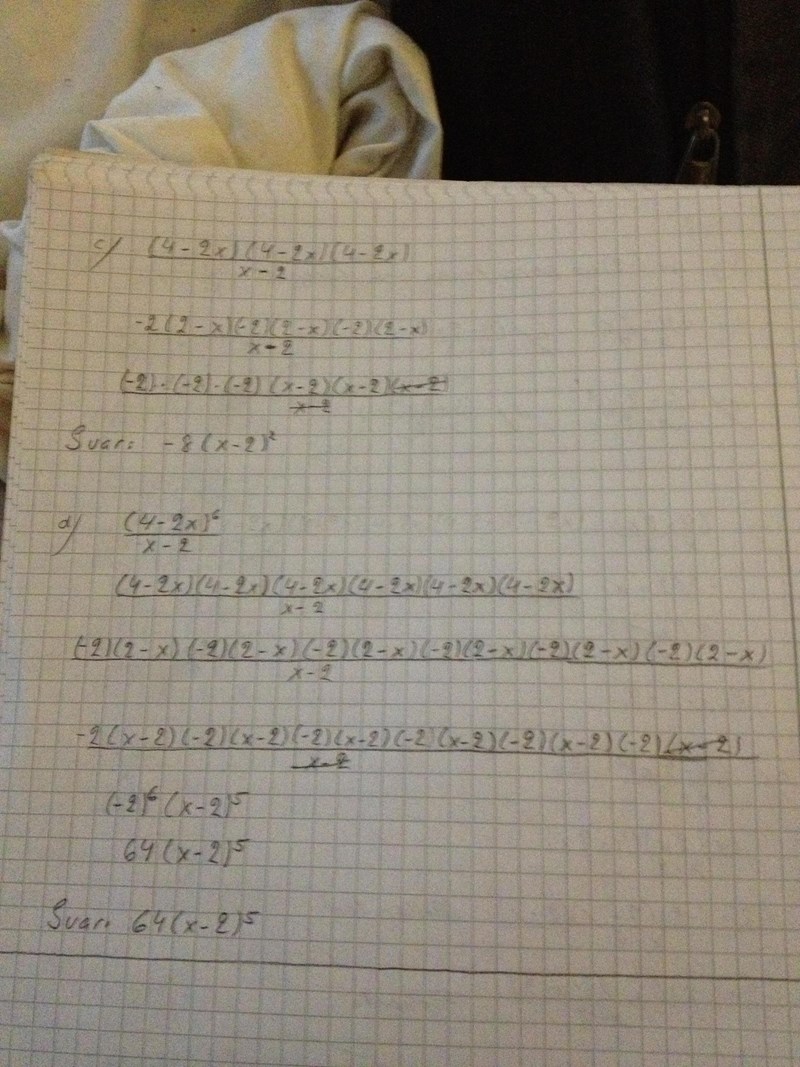 c) (4-2x)(4-2x)(4-2x)
x-2
-2(2-x)(-2)(2-x)(-2)(2-x)
x-2
(-2)·(-2)·(-2)(x-2)(x-2)(x-2)
x-2
Svar: -8(x-2)²
d) (4-2x)⁶
x-2
(4-2x)(4-2x)(4-2x)(4-2x)(4-2x)(4-2x)
x-2
(-2)(2-x)(-2)(2-x)(-2)(2-x)(-2)(2-x)(-2)(2-x)(-2)(2-x)
x-2
-2(x-2)(-2)(x-2)(-2)(x-2)(-2(x-2)(-2)(x-2)(-2)(x-2)
x-2
(-2)⁶(x-2)⁵
64(x-2)⁵
Svar: 64(x-2)⁵